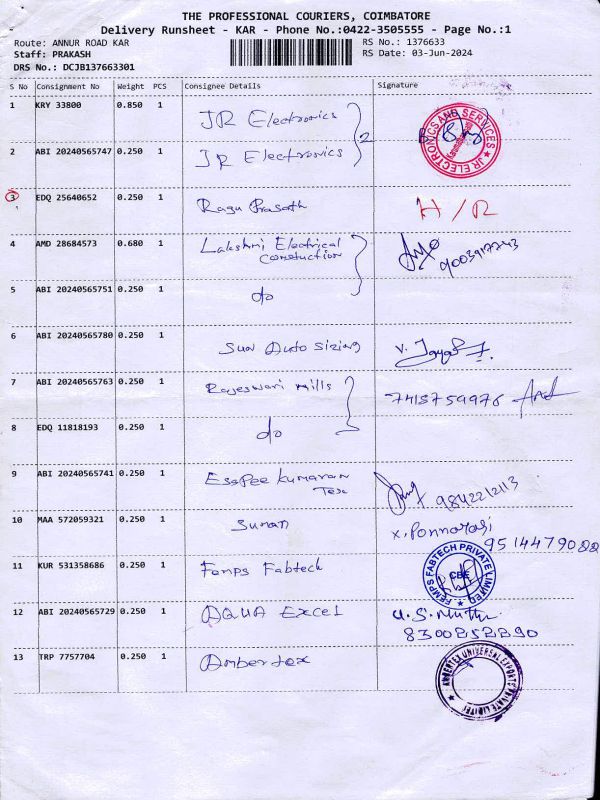 THE PROFESSIONAL COURIERS, COIMBATORE
Delivery Runsheet - KAR - Phone No.:0422-3505555 - Page No.:1
Route: ANNUR ROAD KAR RS No.: 1376633
Staff: PRAKASH RS Date: 03-Jun-2024
DRS No.: DCJB137663301
S No Consignment No Weight PCS Consignee Details Signature
1 KRY 33800 0.850 1 JR Electronics 2
JR ELECTRONICS AND SERVICES
2 ABI 20240565747 0.250 1 JR Electronics
3 EDQ 25640652 0.250 1 Ragu Prasath H/R
4 AMD 28684573 0.680 1 Lakshmi Electrical
5 ABI 20240565751 0.250 1 do
6 ABI 20240565780 0.250 1 Sun Auto Sizing V.
7 ABI 20240565763 0.250 1 Rajeswari mills
8 EDQ 11818193 0.250 1 do
9 ABI 20240565741 0.250 1 EssPee Kumaran
Tex 9842212113
10 MAA 572059321 0.250 1 Suman X. Ponnarasi
11 KUR 531358686 0.250 1 Femps Fabtech
FEMPS FABTECH PRIVATE LIMITED
CBE
12 ABI 20240565729 0.250 1 AQUA Excel U.S.Muthu
8300852290
13 TRP 7757704 0.250 1 Ambertex
AMBERTEX UNIVERSAL EXPORTS PRIVATE LIMITED